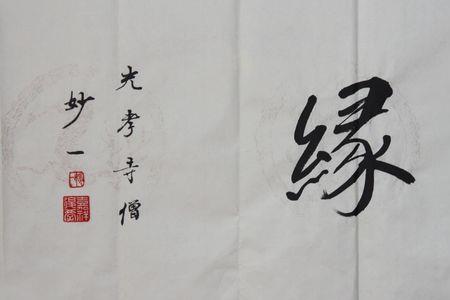 緣
光孝寺僧
妙一